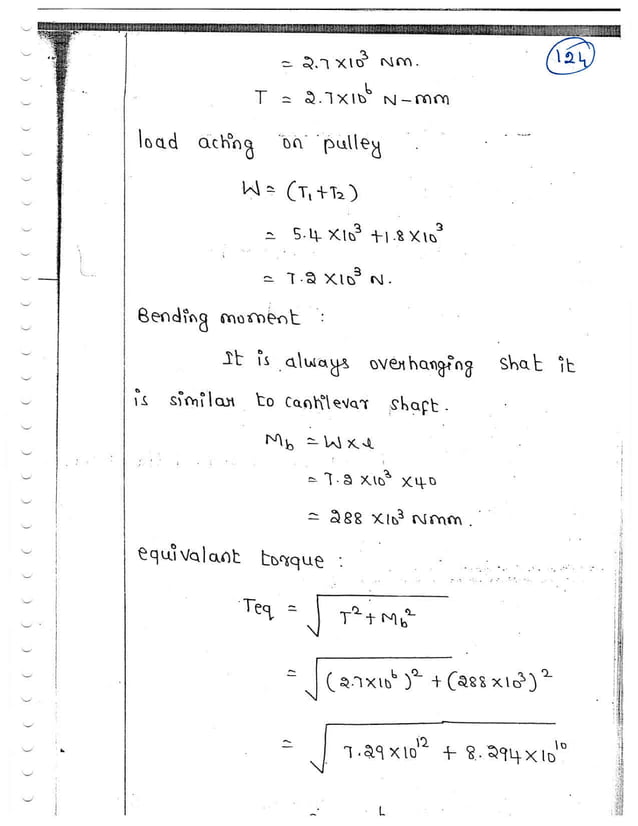 124
= 2.7 × 10³ Nm.
T = 2.7×10⁶ N-mm
load acting on pulley
W = (T₁+T₂)
= 5.4 ×10³ +1.8×10³
= 7.2 ×10³ N.
Bending moment :
It is always overhanging shat it
is similar to cantilevar shaft.
M_b = W×l
= 7.2 ×10³ ×40
= 288 ×10³ Nmm.
equivalant torque :
Teq = √(T² + M_b²)
= √((2.7×10⁶)² + (288×10³)²)
= √(7.29×10¹² + 8.294×10¹⁰)